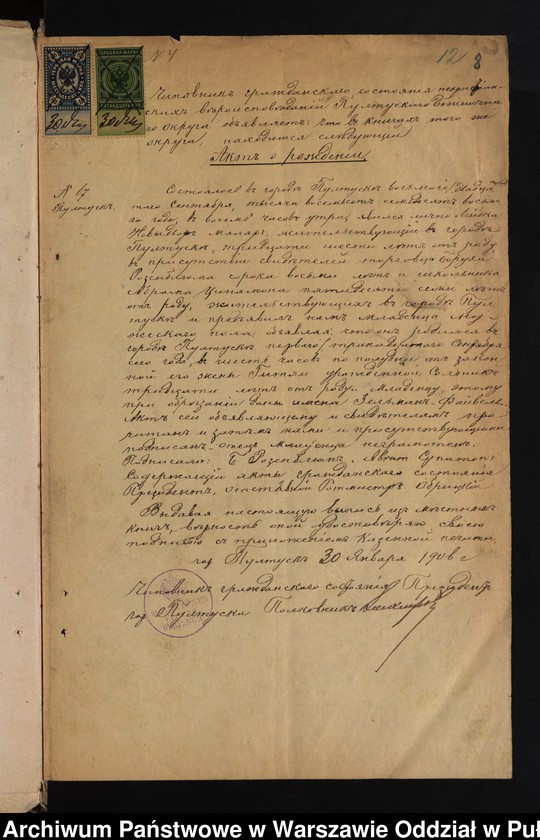 N 4
12 8
Чиновникъ гражданскаго состоянія нехристіан-
скихъ вѣроисповѣданій Пултускаго Божнична-
го округа объявляетъ что въ книгахъ того же
округа, находится слѣдующій
Актъ о рожденіи
N 67
Пултускъ.
Состоялось въ городѣ Пултускѣ восьмого/двадца-
таго Сентября, тысяча восемьсотъ семьдесятъ восьмо-
го года, въ восемь часовъ утра, явился лично
маляръ, жительствующій въ городѣ
Пултускѣ, тридцати шести лѣтъ отъ роду
въ присутствіи свидѣтелей
Розенблюма сорока восьми лѣтъ и школьника
пятидесяти семи лѣтъ
отъ роду, жительствующихъ въ городѣ Пул-
тускѣ и предъявилъ намъ младенца му-
жескаго пола, объявляя, что онъ родился въ
городѣ Пултускѣ перваго/тринадцатаго Сентября
сего года, въ шесть часовъ по полудни отъ закон-
ной его жены Гитли урожденной
тридцати лѣтъ отъ роду. Младенцу этому
при обрѣзаніи даны имена Зельманъ-Файвель.
Актъ сей объявляющему и свидѣтелямъ про-
читанъ и затѣмъ нами и присутствующими
подписанъ, отецъ младенца неграмотенъ.
Подписали: Б Розенблюмъ,
Содержащій акты гражданскаго состоянія
Президентъ, отставной Ротмистръ
Выдавая настоящую выпись изъ мѣстныхъ
книгъ, вѣрность оной удостовѣряю своею
подписью съ приложеніемъ казенной печати.
гор Пултускъ 30 Января 1906 г
Чиновникъ гражданскаго состоянія Президентъ
гор Пултуска Полковникъ
Archiwum Państwowe w Warszawie Oddział w Puł